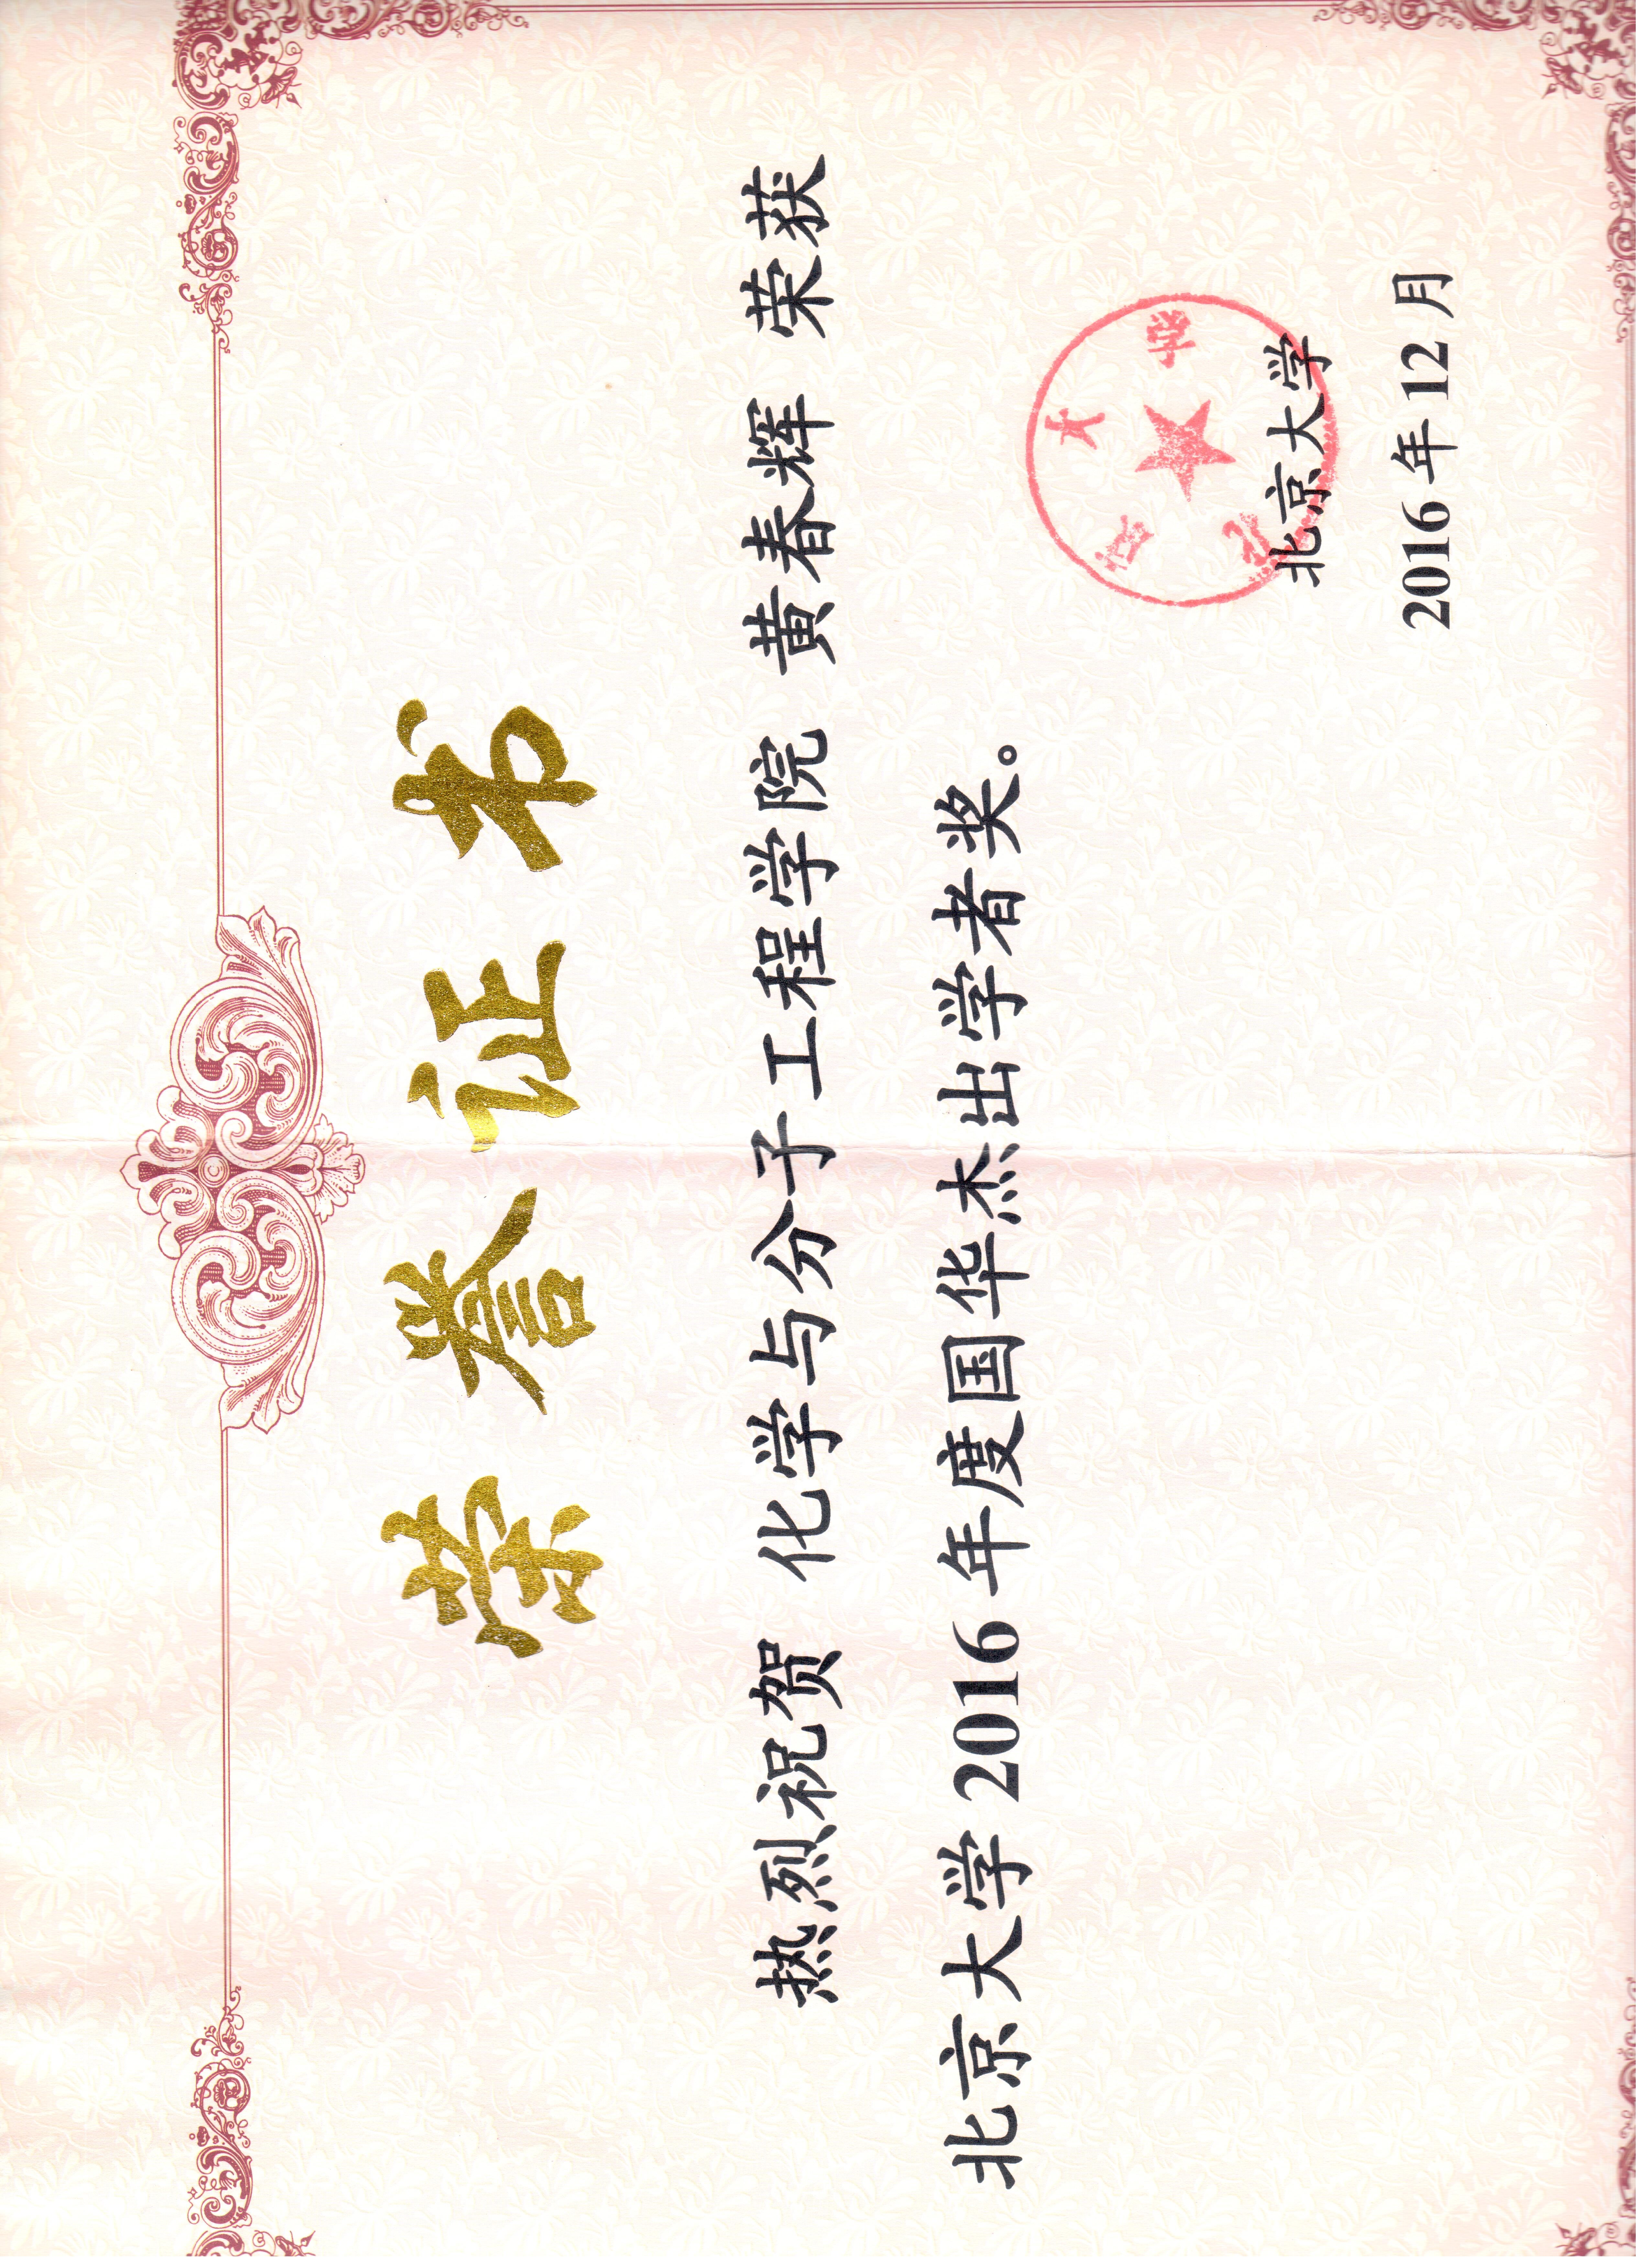 荣誉证书
热烈祝贺 化学与分子工程学院 黄春辉 荣获
北京大学 2016 年度国华杰出学者奖。
北京大学
北京大学
2016 年 12 月